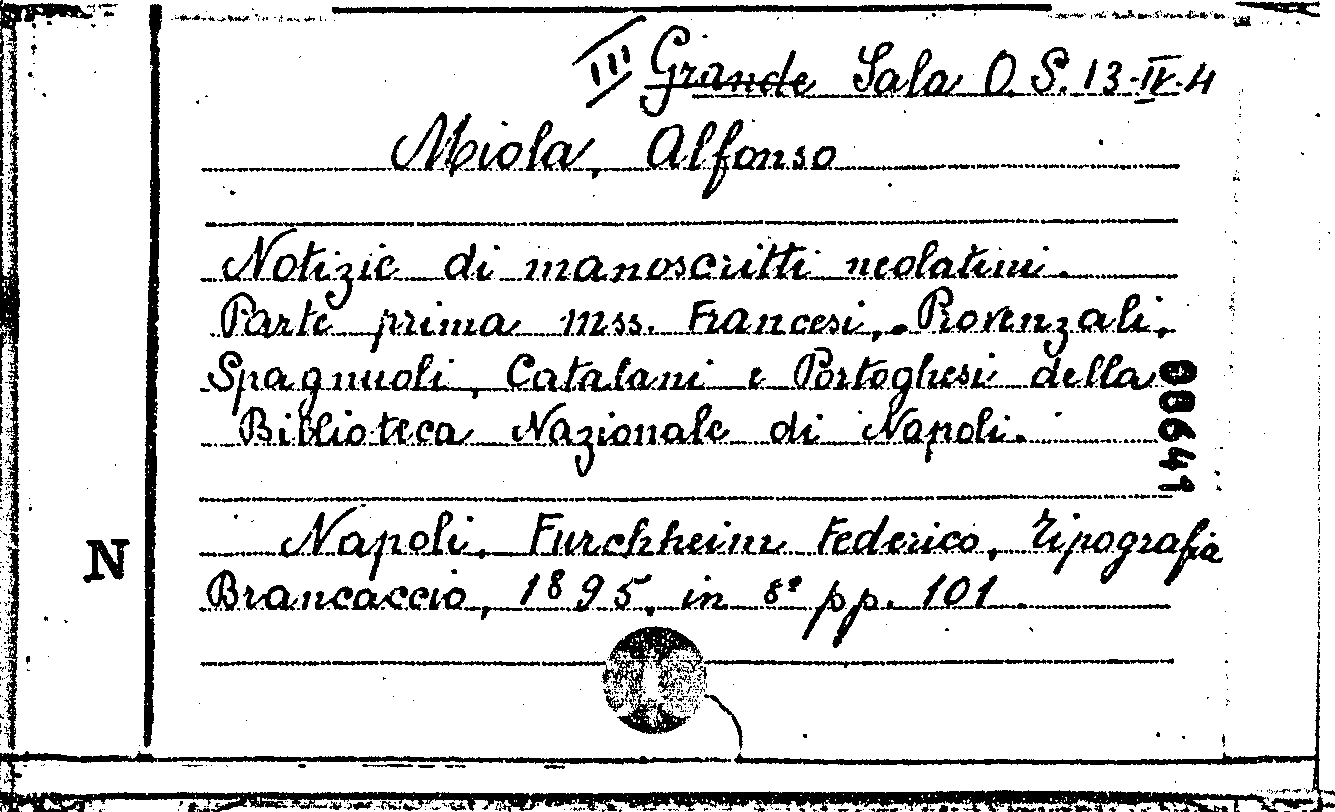 III Grande Sala O. S. 13-IV-4
Miola, Alfonso
Notizie di manoscritti neolatini.
Parte prima mss. Francesi, Provenzali,
Spagnuoli, Catalani e Portoghesi della
Biblioteca Nazionale di Napoli.
88641
Napoli, Furchheim Federico, Tipografia
Brancaccio, 1895, in 8° pp. 101
N